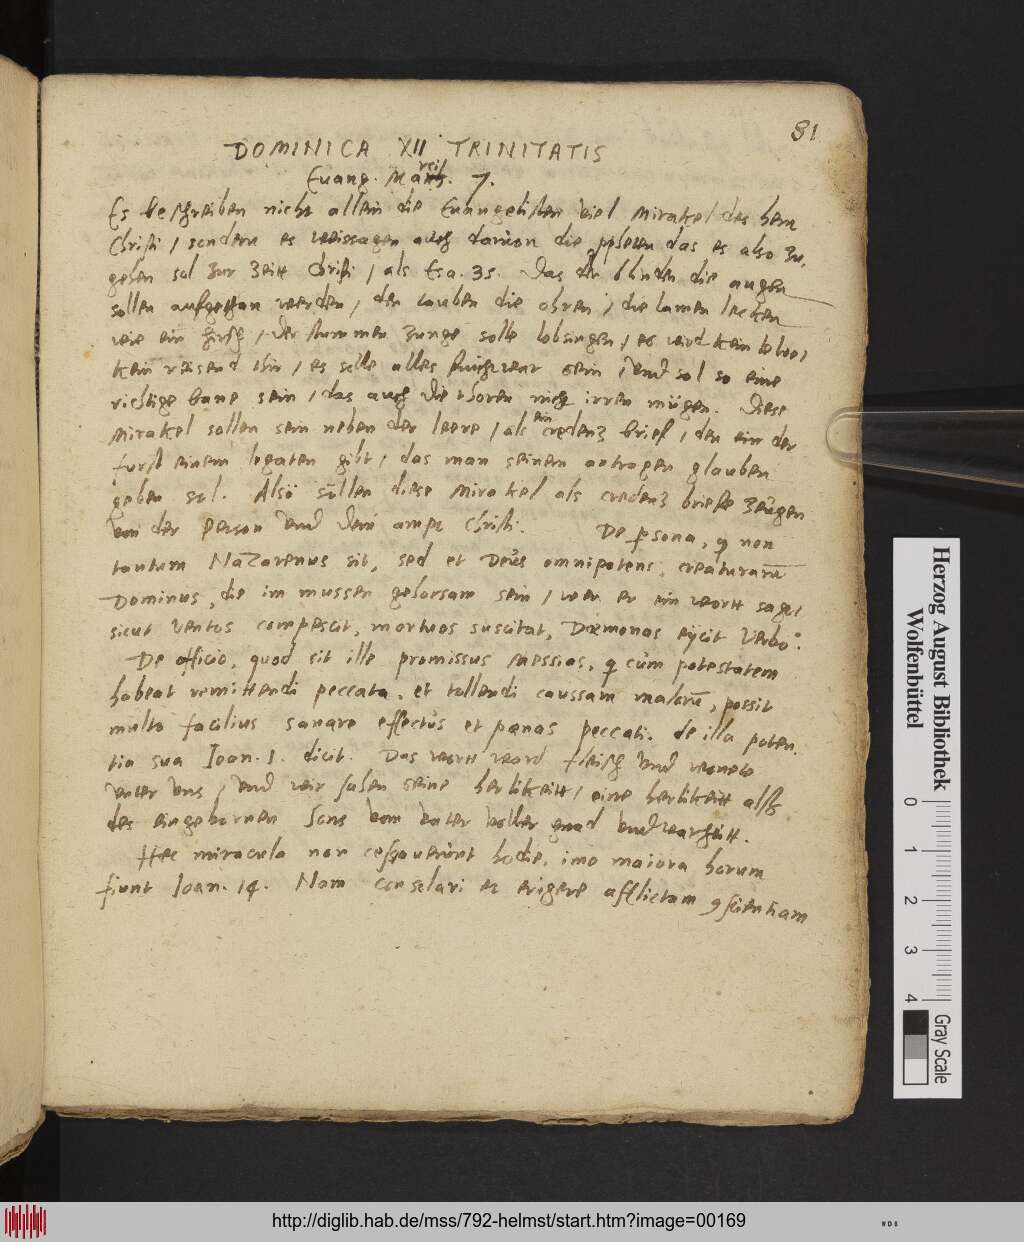 81
DOMINICA XII TRINITATIS
Euang. Marci 7.
Es beschreiben nicht allein die Euangelisten viel Mirakel des hern
Christi / sondern es weissagen auch dauon die ppheten das es also zu
gehen sol zur zeitt Christi / als Esa. 35. Das den blinden die augen
sollen aufgethan werden, den tauben die ohren, die lamen lecken
wie ein hirsch, der stummen zunge solle lobsingen, es wird kein
kein reisend thir, es solle alles sein, vnd sol so eine
richtige bane sein, das auch die thoren nicht irren mügen. Diese
Mirakel sollen sein neben der leere, als ein credenz brief, den ein der
furst einem legaten gibt, das man seinem antragen glauben
geben sol. Also söllen diese Mirakel als credenz briefe zeugen
von der Person vnd dem ampt Christi. De psona, q non
tantum Nazarenus sit, sed et Deus omnipotens, creaturarū
Dominus, die im mussen gehorsam sein, wen er ein wortt sagt
sicut ventos compescit, mortuos suscitat, Dæmonas eijcit verbo.
De officio, quod sit ille promissus Messias, q cum potestatem
habeat remittendi peccata, et tollendi caussam malorū, possit
multo facilius sanare effectus et pœnas peccati. de illa poten
tia sua Joan. 1. dicit. Das wortt ward fleisch vnd wonete
vnter vns, vnd wir sahen seine herlikeitt, eine herlikeitt alß
des eingebornen Sons vom vater voller gnad vnd warheitt.
Hec miracula non cessauerunt hodie, imo maiora horum
fiunt Joan. 14. Nam consolari et erigere afflictam 9scientiam
Herzog August Bibliothek
Wolfenbüttel
0 1 2 3 4
Gray Scale
http://diglib.hab.de/mss/792-helmst/start.htm?image=00169